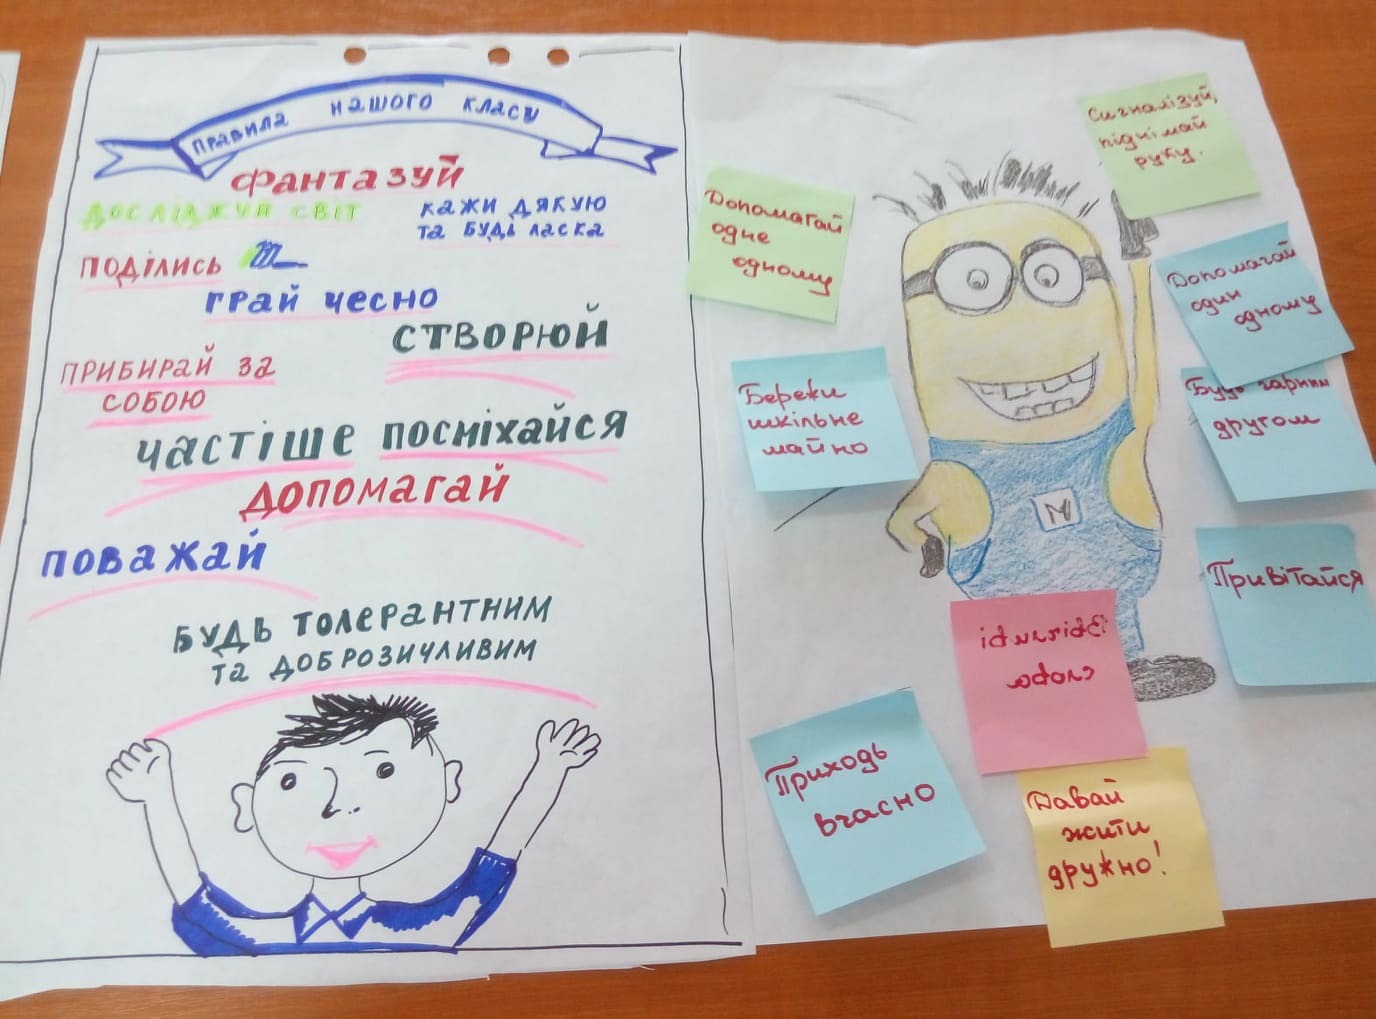 правила нашого класу
фантазуй
досліджуй світ
кажи дякую
та будь ласка
поділись
грай чесно
створюй
прибирай за
собою
частіше посміхайся
допомагай
поважай
будь толерантним
та доброзичливим
Допомагай
одне
одному
Бережи
шкільне
майно
Сигналізуй,
піднімай
руку.
Допомагай
один
одному
Будь гарним
другом
Привітайся
M
слова
Приходь
вчасно
Давай
жити
дружно!